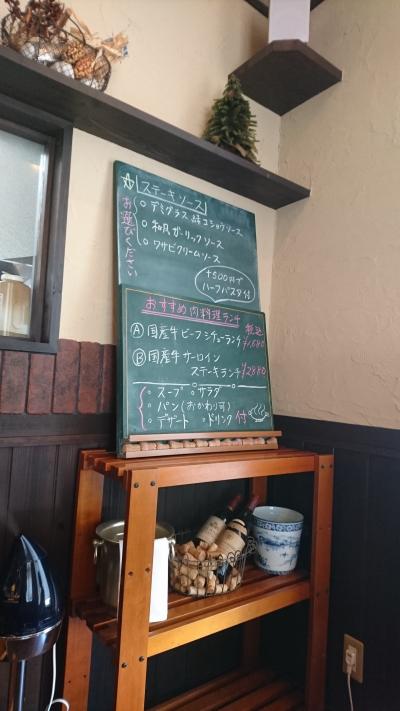 ☆ステーキソース
お選びください
○デミグラス 緑コショウソース
○和風ガーリックソース
○ワサビクリームソース
+500円で
ハーフパスタ付
おすすめ肉料理ランチ
税込
Ⓐ国産牛ビーフシチューランチ ¥1680
Ⓑ国産牛サーロイン
ステーキランチ ¥2880
○スープ ○サラダ
○パン(おかわり可)
○デザート ○ドリンク付